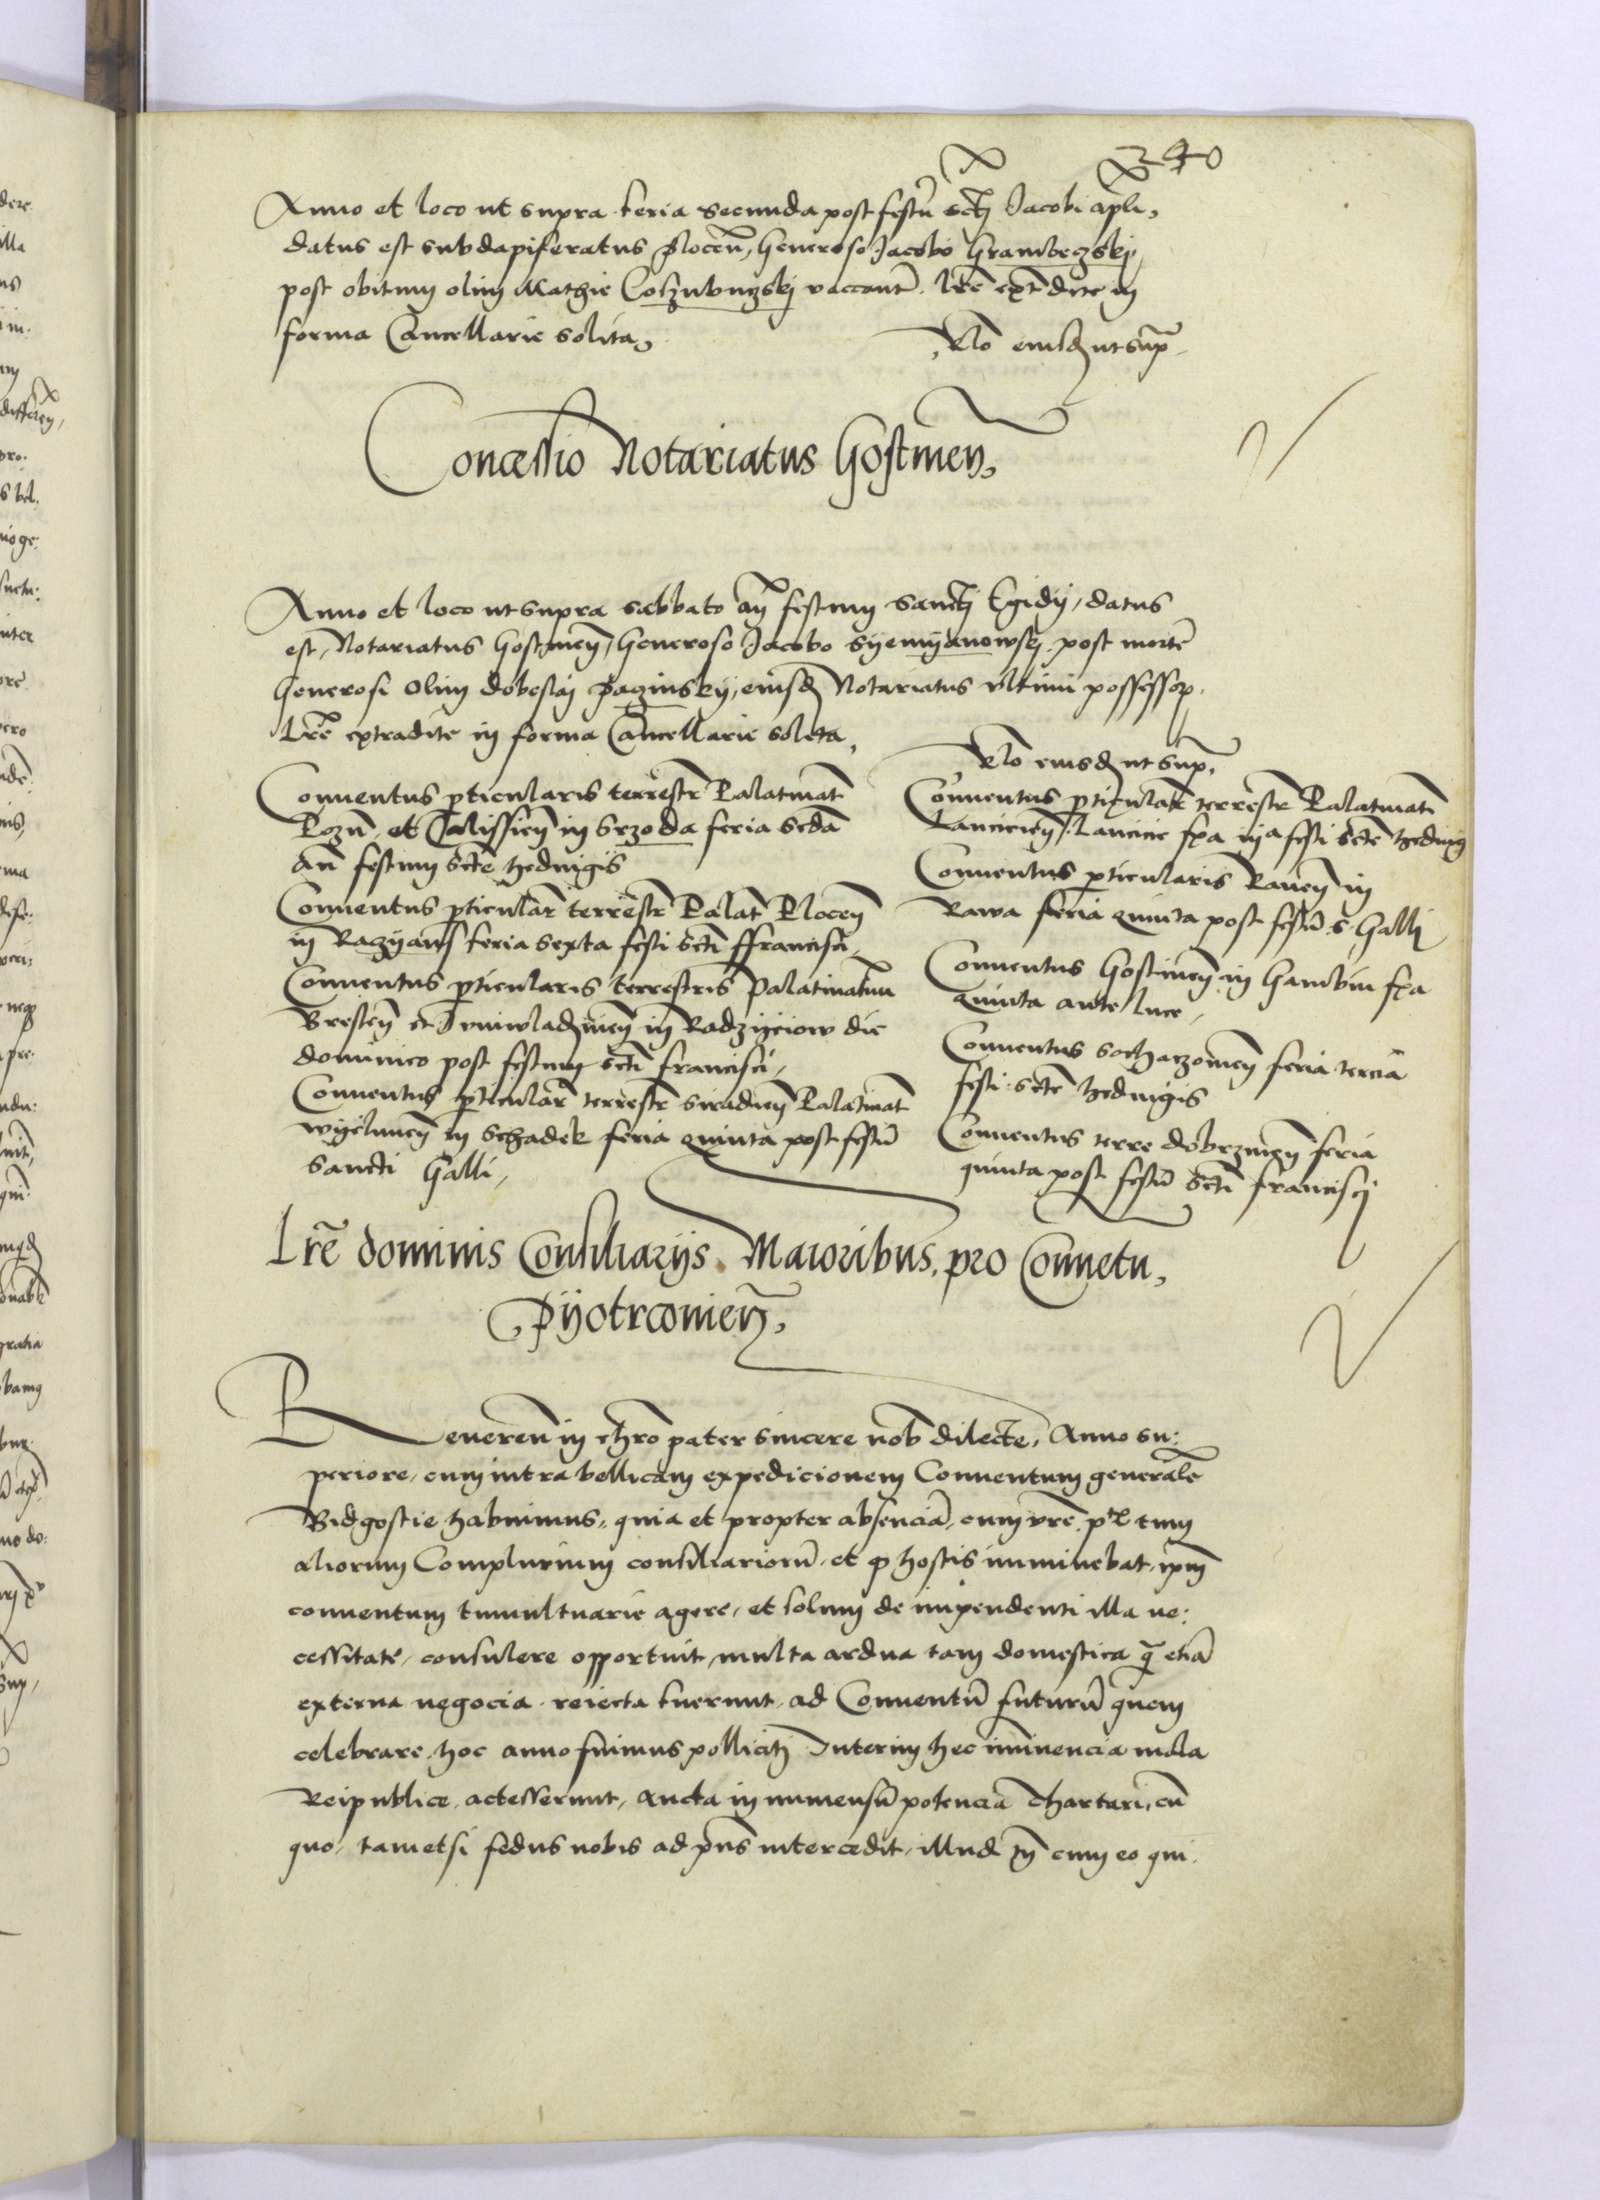 240
Anno et loco ut supra feria secunda post festū sctj Jacobi apli,
datus est subdapiferatus Plocen, Generoso Jacobo Grambczskij
post obitum olim Mathie vaccantē. Lrē extradite in
forma Cancellarie solita,
Rlo eiusd ut sup
Concessio Notariatus Gostinen,
Anno et loco ut supra sabbato an festum Sanctj Egidij, datus
est, Notariatus Gostinen, Generoso Jacobo Syemyanowskj post mortē
Generosi olim dobeslaj Paginskij, eiusd Notariatus ultimi possessor
Lrē extradite in forma Cancellarie soleta,
Rlo eiusd ut sup,
Conuentus pticularis terrestr Palatinat
Pozn et Calissien in Srzoda feria scda
an festum scte Hedwigis
Conuentus pticular terrestr Palat Plocen
in Razyans feria sexta festi scti ffrancisci,
Conuentus pticularis terrestris Palatinatuu
Bresten et Juniuladislauien in Radzyeiow die
dominico post festum scti francisci,
Conuentus pticular terrestr Siradien Palatinat
wyelunen in Schadek feria quinta post festū
Sancti Galli,
Conuentus pticular terrestr Palatinat
Lancicien, Lancicie fra iija festi scte Hedwig
Conuentus pticularis Rauen in
Rawa feria quinta post festū s. Galli
Conuentus Gostinen in Gambin fra
quinta ante luce,
Conuentus Sochaczouien feria tercia
festi scte Hedwigis
Conuentus terre dobrzinen feria
quinta post festū scti francisci
Lrē dominis Consiliarijs Maioribus, pro Conuetu,
Pyotrconien,
Reueren in chro pater sincere nob dilecte, Anno su:
periore, cum intra bellicam expedicionem Conuentum generalē
Bidgostie habuimus, quia et propter absenciā, cum vrē p tum
aliorum Complurium consiliariorū, et q hostis imminebat, ipm
conuentum tumultuarie agere, et solum de impendenti illa ne:
cessitate, consulere opportuit, multa ardua tam domestica q etiā
externa negocia reiecta fuerunt ad Conuentū futurū quem
celebrare hoc anno fuimus pollicitj Interim hec iminencia mala
Reipublice, accesserunt, aucta in inmensū potencia Thartari, cū
quo, tametsi fedus nobis ad pns intercedit, illud tn cum eo qui